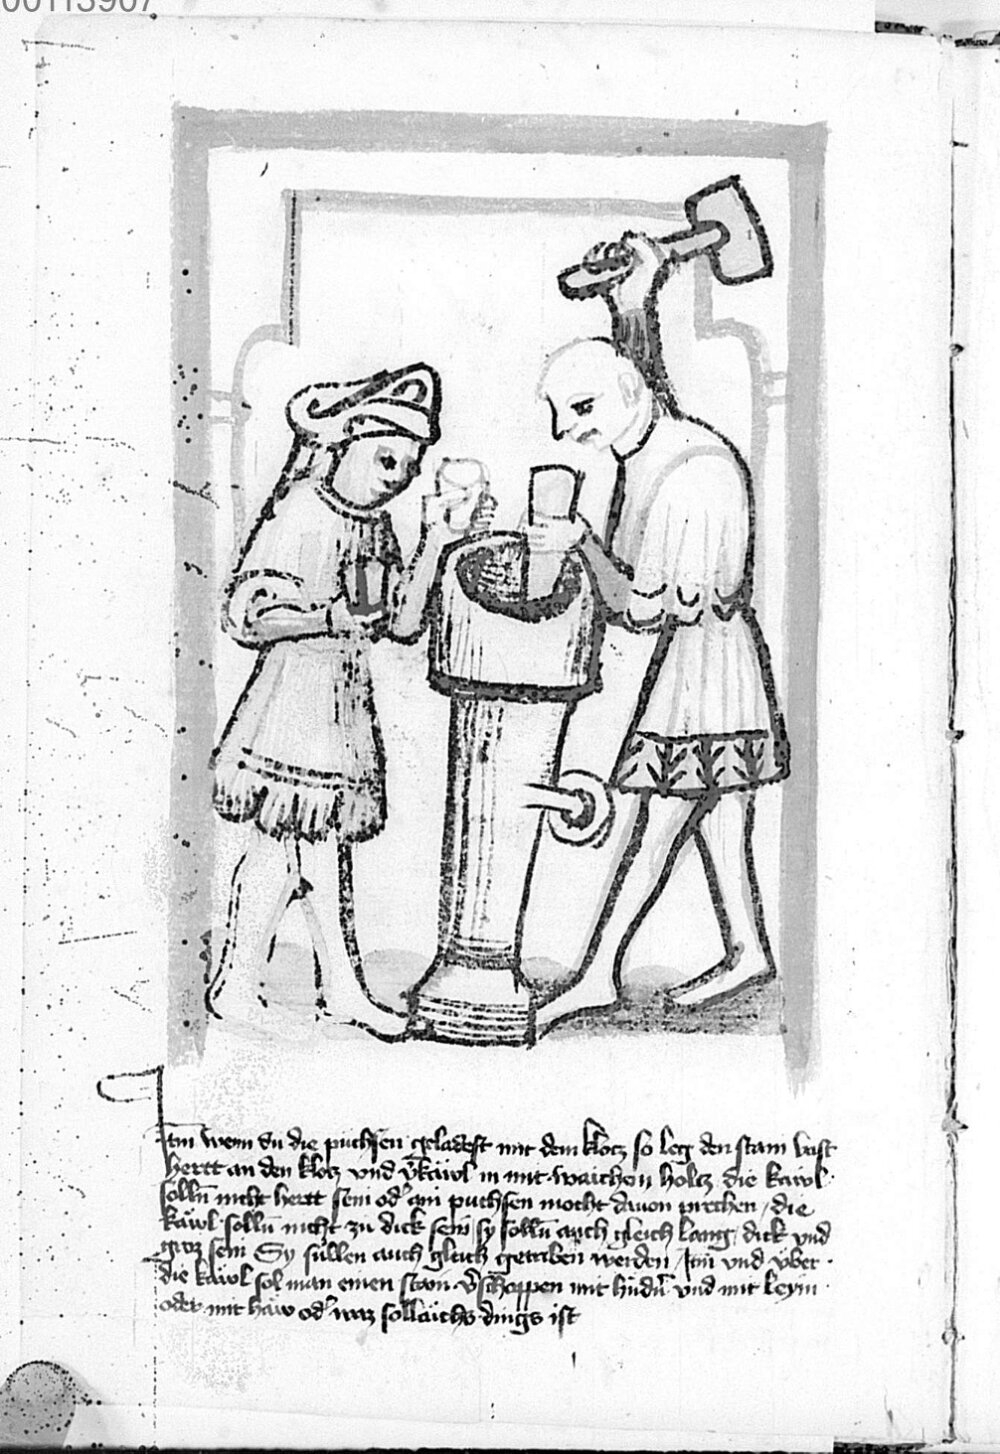 00113967
Itm wenn du die puchsen geladest mit dem klocz so leg den stain vast
hertt an den klocz vnd v̄käwl in mit waichen holcz die käwl
sollñ nicht hertt sein od᷑ ain puchsen mocht dauon prechen / die
käwl sollñ nicht zu dick sein / sy sollñ auch gleich lang / dick vnd
groz sein Sy süllen auch gleich getriben werden / Itm vnd vber
die käwl sol man einen stain v̄schoppen mit hudñ vnd mit leym
oder mit häw od᷑ waz sölleichs dings ist